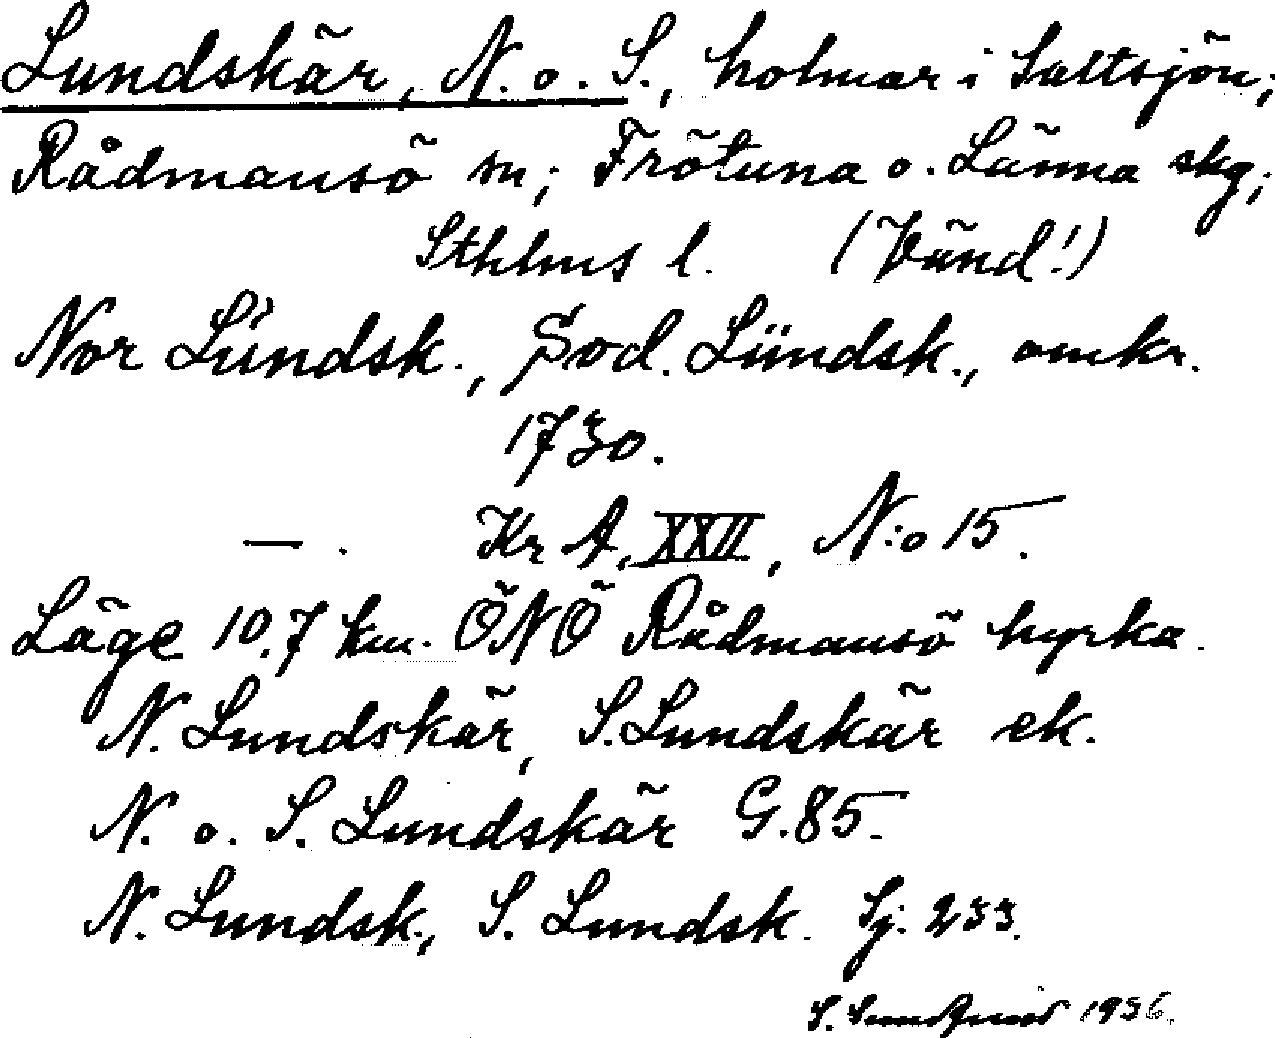 Lundskär, N. o. S., holmar i Saltsjön;
Rådmansö sn; Frötuna o. Länna skg;
Sthlms l. (Vänd!)
Nor Lündsk., Söd. Lündsk., omkr.
1730.
—. Kr A, XXII, N:o 15.
Läge 10,7 km. ÖNÖ Rådmansö kyrka.
N. Lundskär, S. Lundskär ek.
N. o. S. Lundskär G. 85.
N. Lundsk., S. Lundsk. Sj. 233.
S. 1936.